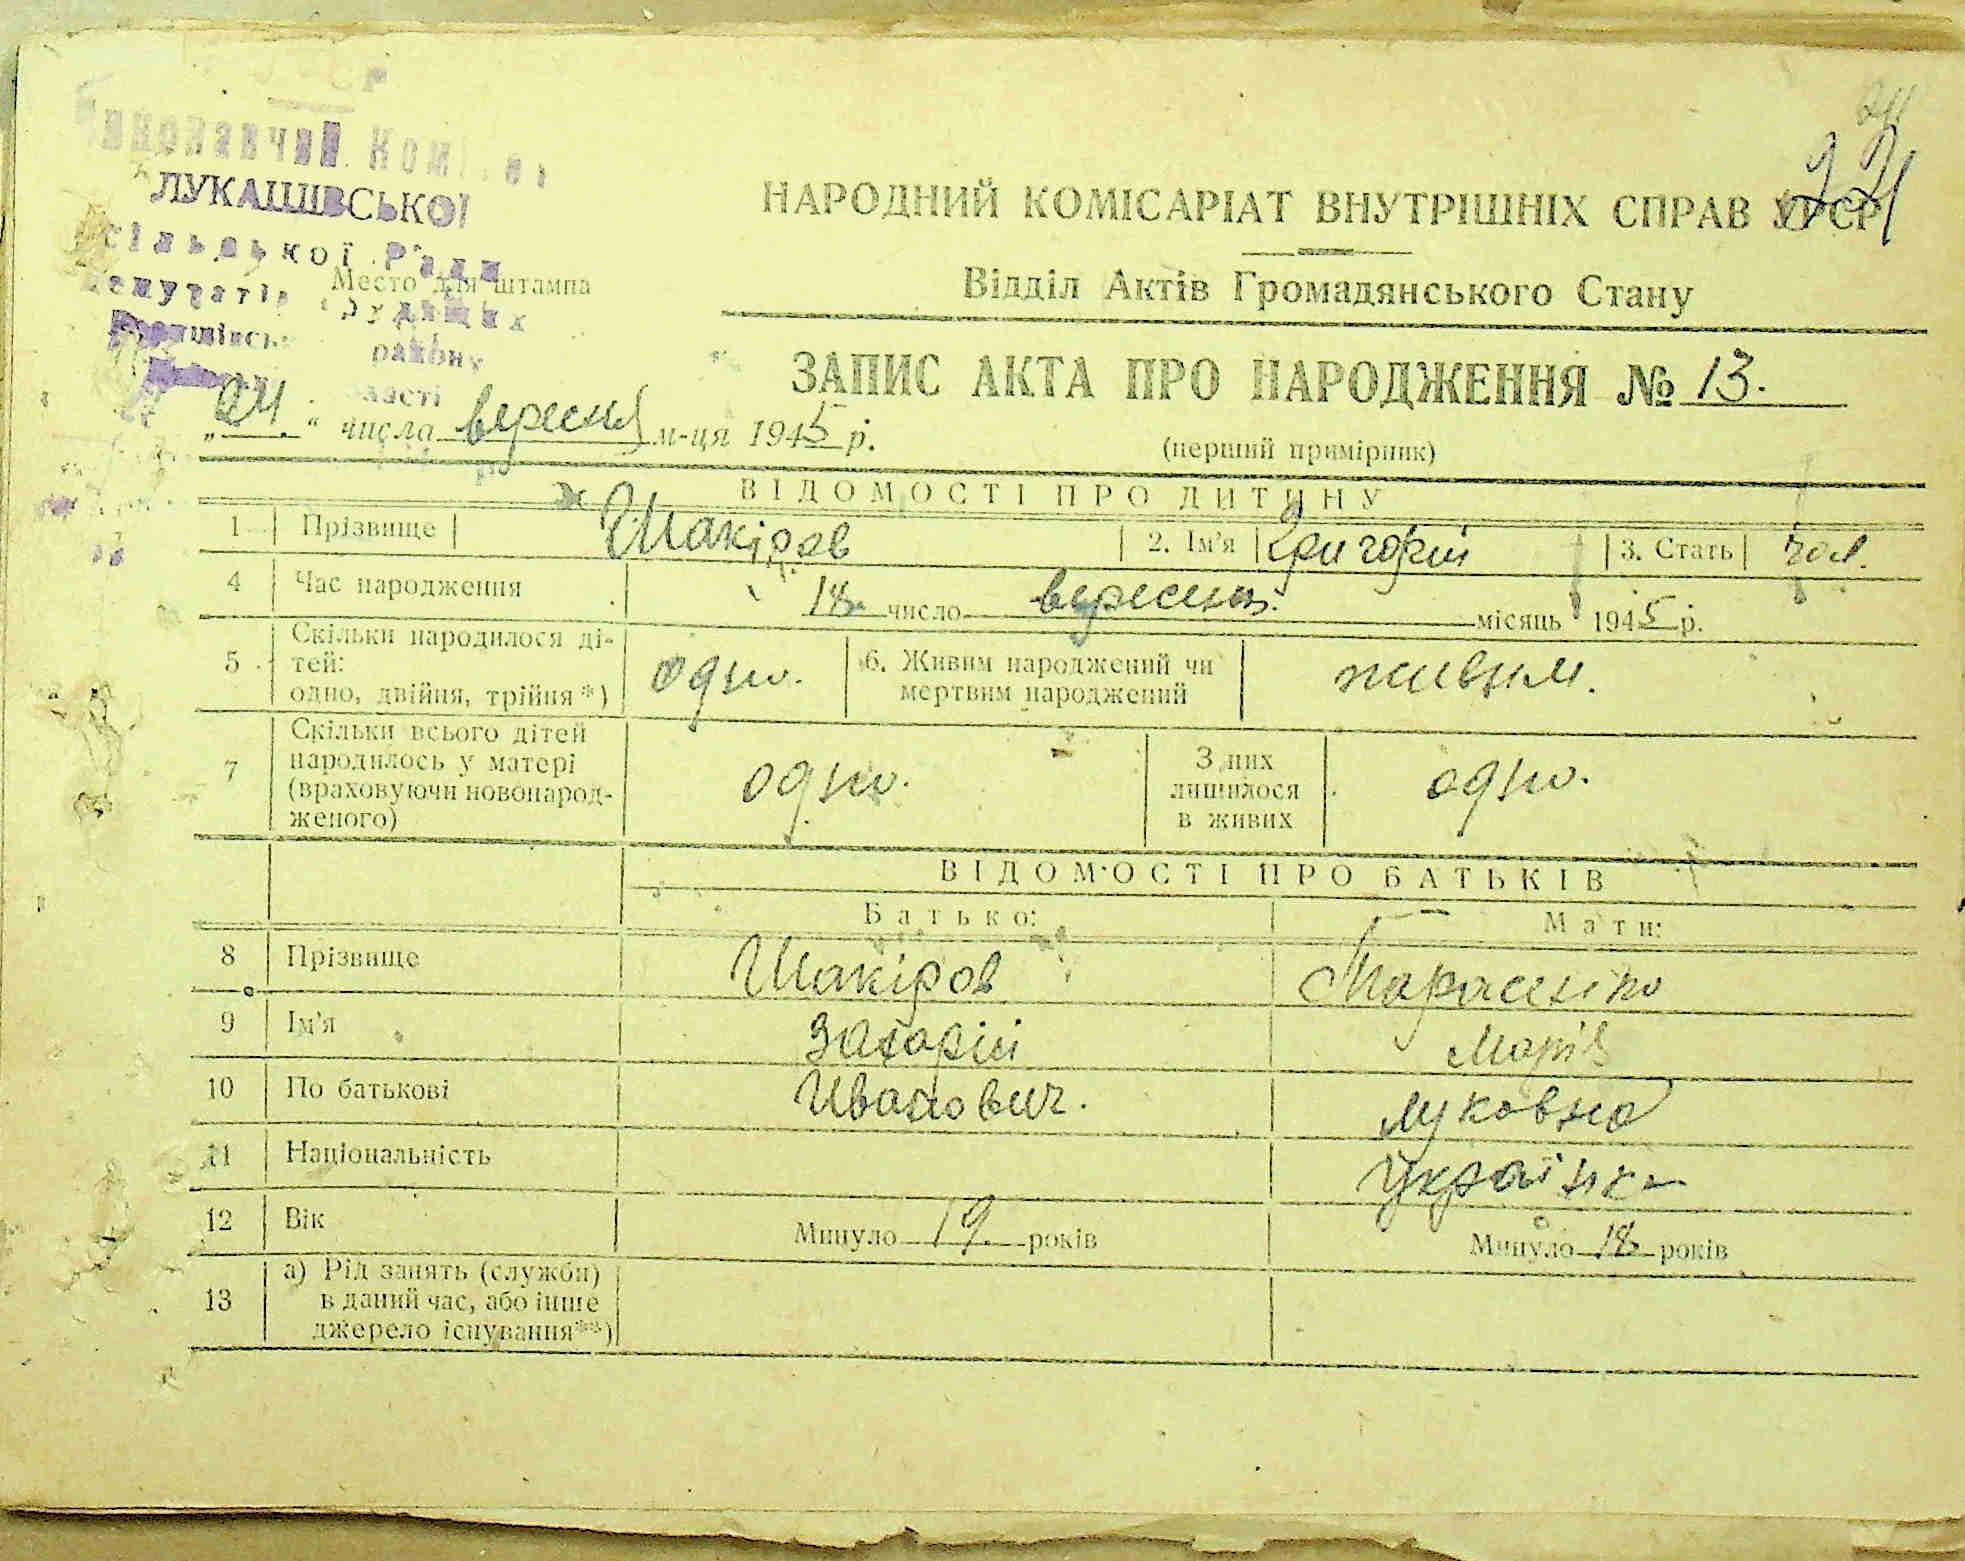 Виконавчий Ком
ЛУКАШІВСЬКОЇ
сільської Ради
депутатів трудящих
району
Место для штампа
24
НАРОДНИЙ КОМІСАРІАТ ВНУТРІШНІХ СПРАВ УРСР
Відділ Актів Громадянського Стану
ЗАПИС АКТА ПРО НАРОДЖЕННЯ № 13.
„24.“ числа вересня м-ця 1945 р.
(перший примірник)
ВІДОМОСТІ ПРО ДИТИНУ
1 Прізвище Шакіров 2. Ім'я Григорій 3. Стать чол.
4 Час народження 18. число вересня. місяць 1945 р.
5 Скільки народилося ді-
тей:
одно, двійня, трійня*) одно. 6. Живим народжений чи
мертвим народжений живим.
7 Скільки всього дітей
народилось у матері
(враховуючи новонарод-
женого) одно. З них
лишилося
в живих одно.
ВІДОМОСТІ ПРО БАТЬКІВ
Батько: Мати:
8 Прізвище Шакіров Тарасенко
9 Ім'я Захарій Марія
10 По батькові Иванович. Луковна
11 Національність Українка
12 Вік Минуло 19. років Минуло 18 років
13 а) Рід занять (служби)
в даний час, або інше
джерело існування**)